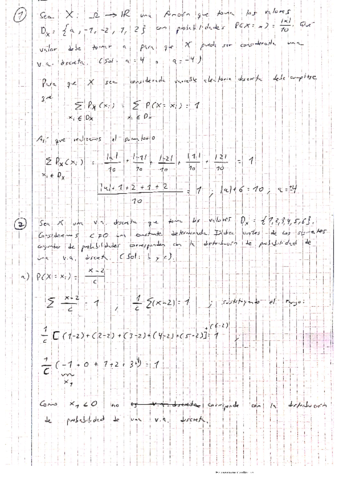 ① Sea X: Ω → IR una función que toma los valores
Dx = {a, -1, -2, 1, 2} con probabilidades P(X=x) = |x|/10. Qué
valor debe tomar a, para que X pueda ser considerada una
v.a. discreta. (Sol: a = 4, a = -4)
Para que X sea considerada variable aleatoria discreta debe cumplirse
que
∑ Px(xi) = ∑ P(X=xi) = 1
xi ∈ Dx xi ∈ Dx
Así que realizamos el sumatorio
∑ Px(xi) = |a|/10 + |-1|/10 + |-2|/10 + |1|/10 + |2|/10 = 1
xi ∈ Dx
|a|+1+2+1+2/10 = 1, |a|+6=10, a=±4
② Sea X una v.a. discreta que toma los valores Dx = {1,2,3,4,5,6}.
Consideramos c≠0 una constante determinada. Diga cuáles de los siguientes
de probabilidades corresponden con la distribución de probabilidad de
una v.a. discreta. (Sol: b, c).
a) P(X=xi) = x-2/c
∑ x-2/c = 1, 1/c ∑(x-2) = 1; sustituyendo el rango:
1/c [(1-2)+(2-2)+(3-2)+(4-2)+(5-2)+(6-2)] = 1,
1/c (-1+0+1+2+3+4) = 1
x1
Como x1 < 0 no es v.a. discreta corresponde con la distribución
de probabilidad de una v.a. discreta.